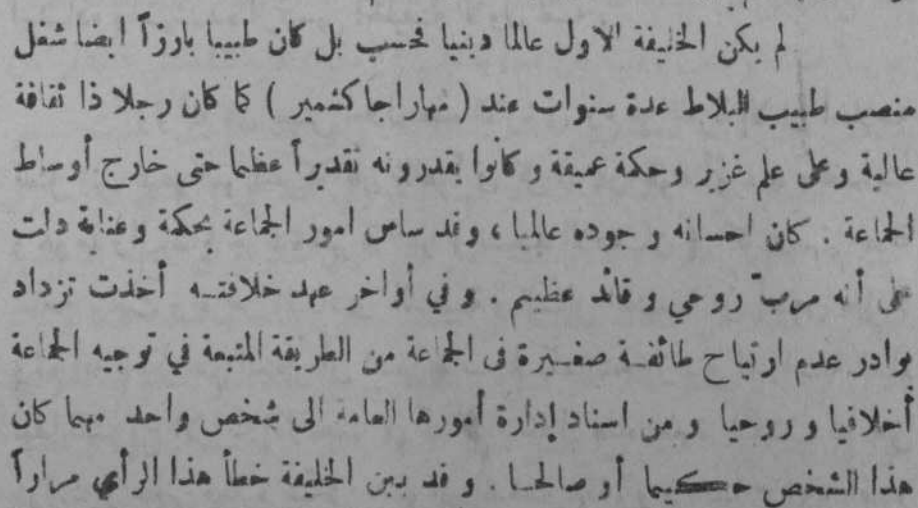 لم يكن الخليفة الاول عالما دينيا فحسب بل كان طبيبا بارزاً ايضا شغل
منصب طبيب البلاط عدة سنوات عند ( مهاراجا كشمير ) كما كان رجلا ذا ثقافة
عالية وعلى علم غزير وحكمة عميقة و كانوا يقدرونه تقديراً عظيما حتى خارج أوساط
الجماعة . كان احسانه و جوده عالميا ، وقد ساس امور الجماعة بحكمة وعناية دلت
على أنه مربّ روحي و قائد عظيم . و في أواخر عهد خلافتـه أخذت تزداد
بوادر عدم ارتياح طائفـة صغـيرة فى الجماعة من الطريقة المتبعة في توجيه الجماعة
أخلاقيا و روحيا و من اسناد إدارة أمورها العامة الى شخص واحد مهما كان
هذا الشخص حكيما أو صالحـا . و قد بين الخليفة خطأ هذا الرأي مراراً